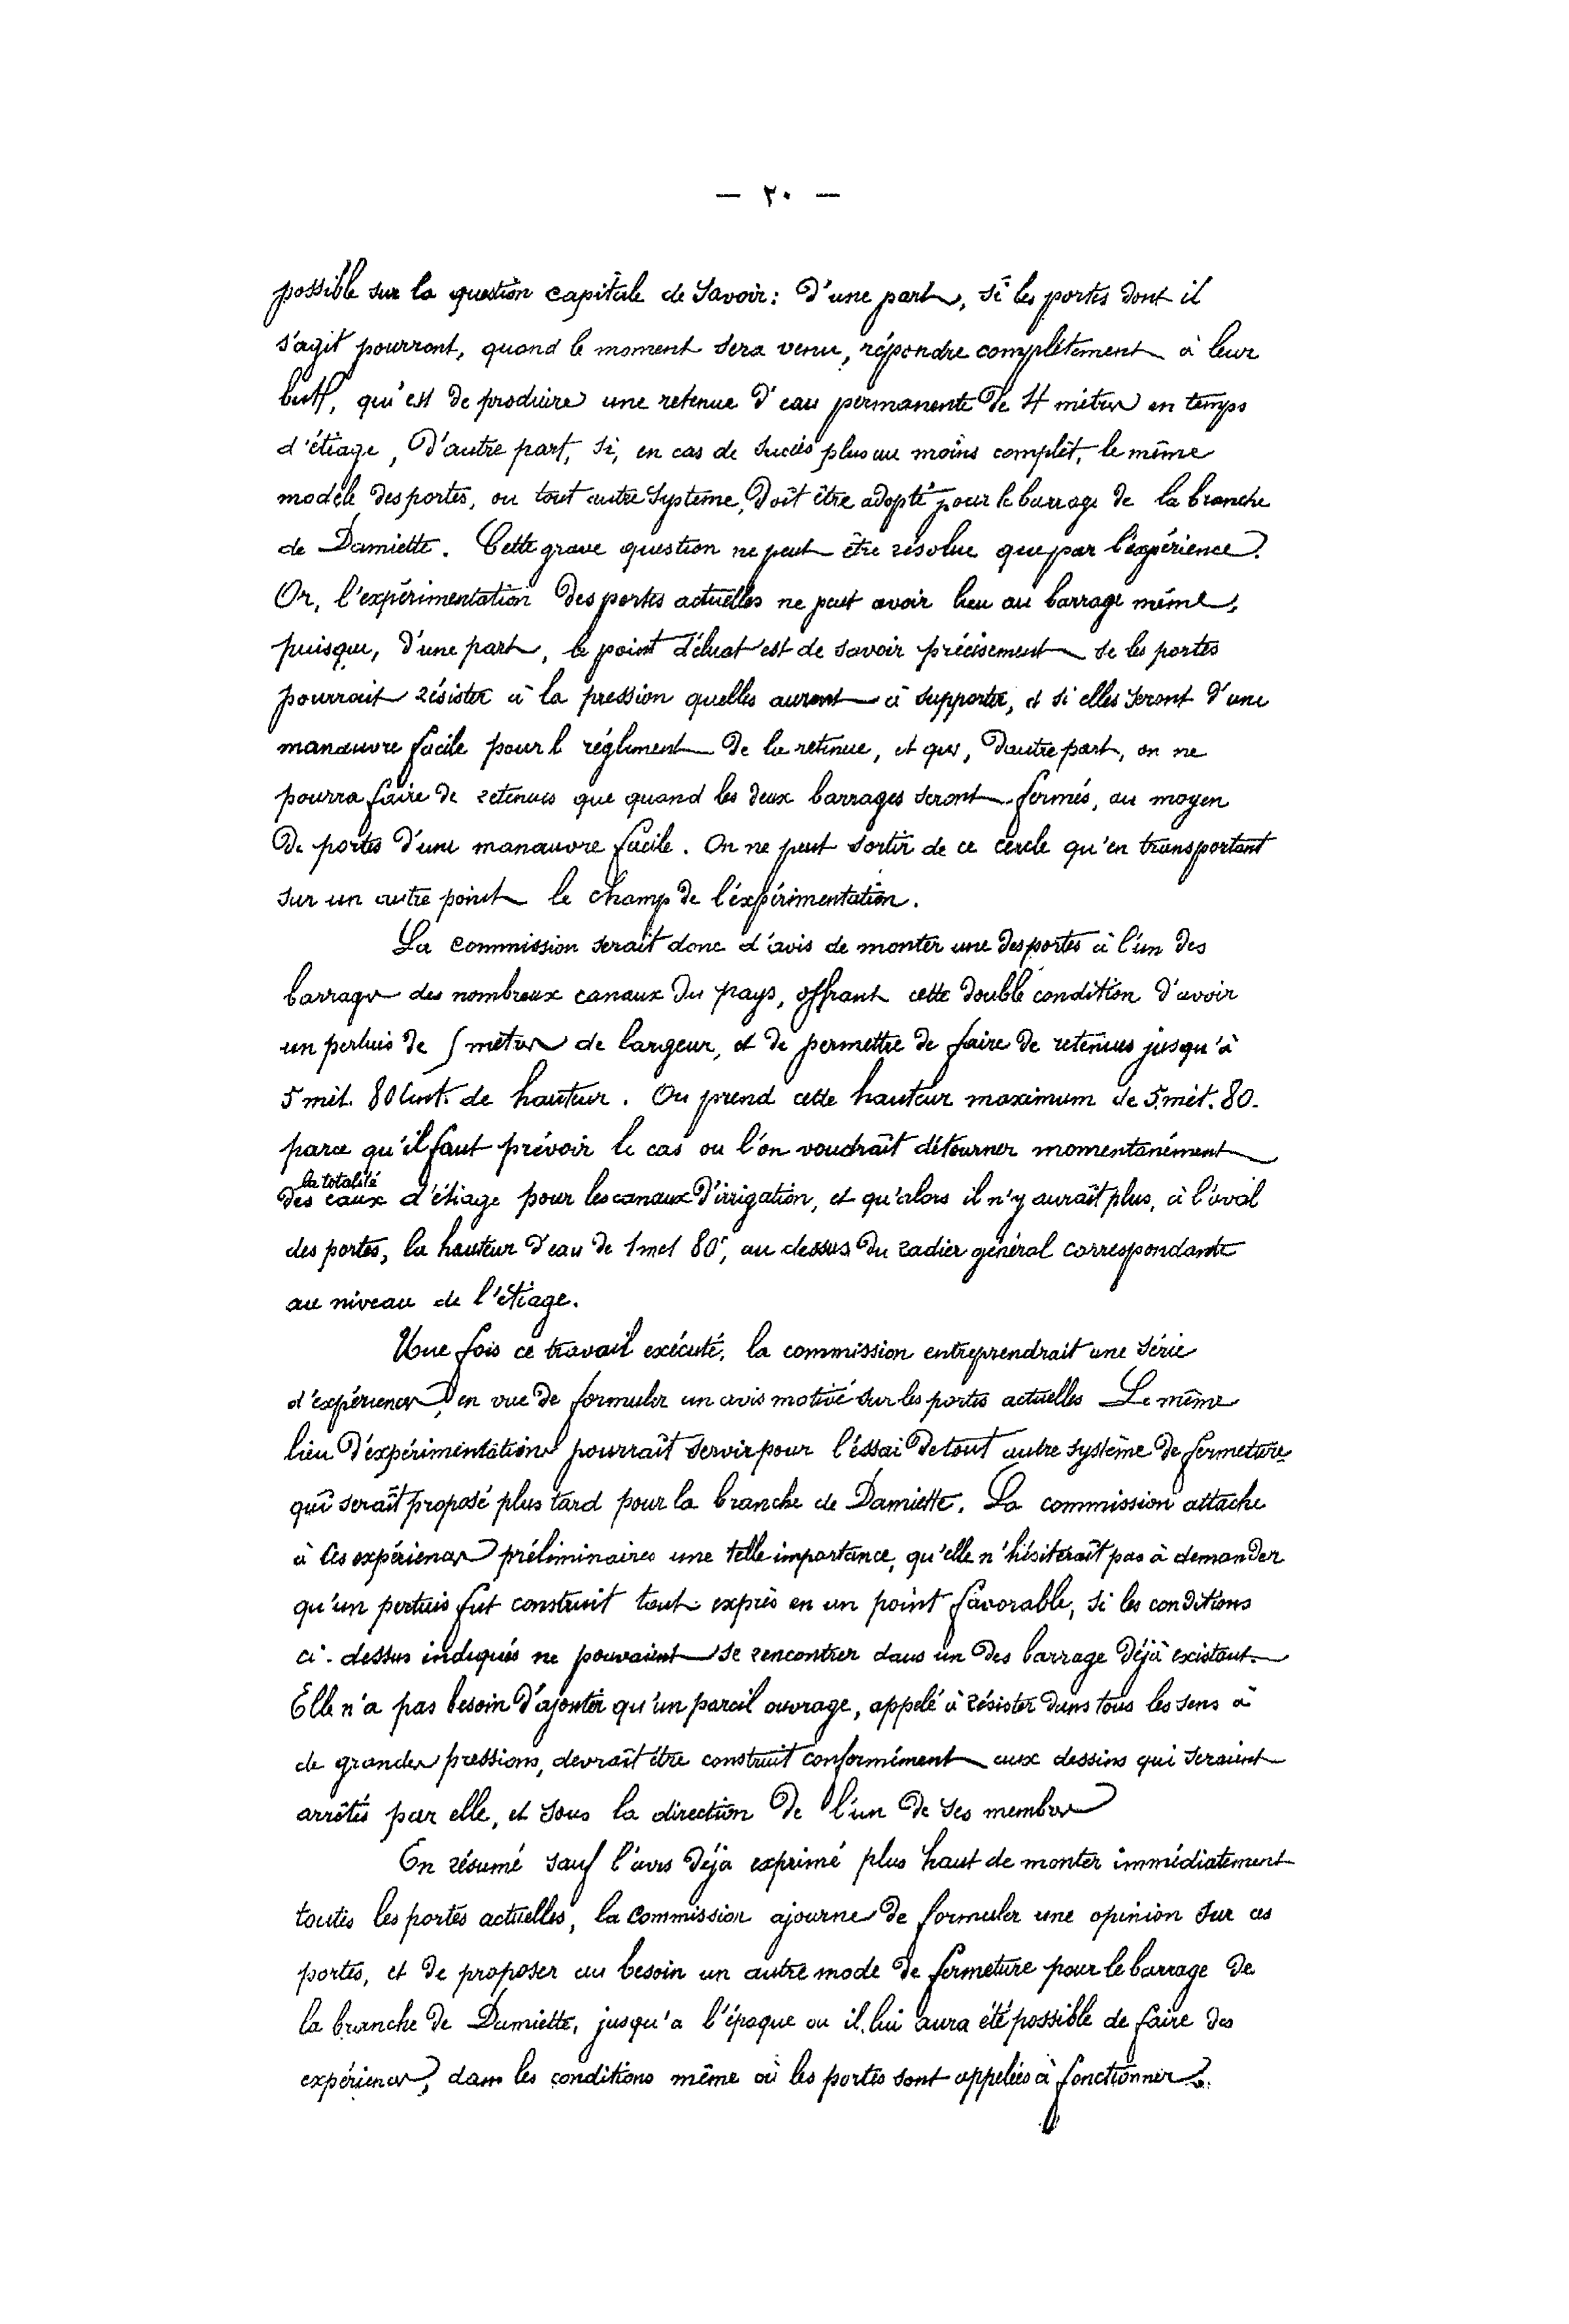 — ٢٠ —
possible sur la question capitale de savoir: d'une part, si les portes dont il
s'agit pourront, quand le moment sera venu, répondre complètement à leur
but, qu'est de produire une retenue d'eau permanente de 4 mètres en temps
d'étiage, d'autre part, si, en cas de succès plus au moins complèt, le même
modèle des portes, ou tout autre système, doit être adopté pour le barrage de la branche
de Damiette. Cette grave question ne peut être résolue que par l'expérience.
Or, l'expérimentation des portes actuelles ne peut avoir lieu au barrage même,
puisque, d'une part, le point est de savoir précisement se les portes
pourrait résister à la pression quelles auront à supporter, et si elles seront d'une
manœuvre facile pour l réglement de la retenue, et que, d'autre part, on ne
pourra faire de retenues que quand les deux barrages seront fermés, au moyen
de portes d'une manœuvre facile. On ne peut sortir de ce cercle qu'en transportant
sur un autre point le champ de l'éxpérimentation.
La commission serait donc d'avis de monter une des portes à l'un des
barrages des nombreux canaux du pays, offrant cette double condition d'avoir
un pertuis de 5 mètres de largeur, et de permettre de faire de retenues jusqu'à
5 mèt. 80 Cent. de hauteur. On prend cette hauteur maximum de 5. mèt. 80.
parce qu'il faut prévoir le cas ou l'on voudrait détourner momentanément
la totalité
des eaux d'étiage pour les canaux d'irrigation, et qu'alors il n'y aurait plus, à l'aval
des portes, la hauteur d'eau de 1 met 80c, au dessus du radier général correspondante
au niveau de l'étiage.
Une fois ce travail exécuté, la commission entreprendrait une série
d'expériences, en vue de formuler un avis motivé sur les portes actuelles Le même
lieu d'expérimentation pourrait servir pour l'éssai de tout autre système de fermeture
qui serait proposé plus tard pour la branche de Damiette. La commission attache
à ces expériences préliminaires une telle importance, qu'elle n'hésiterait pas à demander
qu'un pertuis fut construit tout exprès en un point favorable, si les conditions
ci-dessus indiqués ne pouvaient se rencontrer dans un des barrage déjà existant.
Elle n'a pas besoin d'ajouter qu'un pareil ouvrage, appelé à résister dans tous les sens à
de grandes pressions, devrait être construit conformément aux dessins qui seraient
arrêtés par elle, et sous la direction de l'un de ses membres
En résumé sauf l'avis déja exprimé plus haut de monter immédiatement
toutes les portes actuelles, la Commission ajourne de formuler une opinion sur ces
portes, et de proposer au besoin un autre mode de fermeture pour le barrage de
la branche de Damiette, jusqu'a l'époque ou il lui aura été possible de faire des
expériences, dans les conditions même où les portes sont appelées à fonctionner.